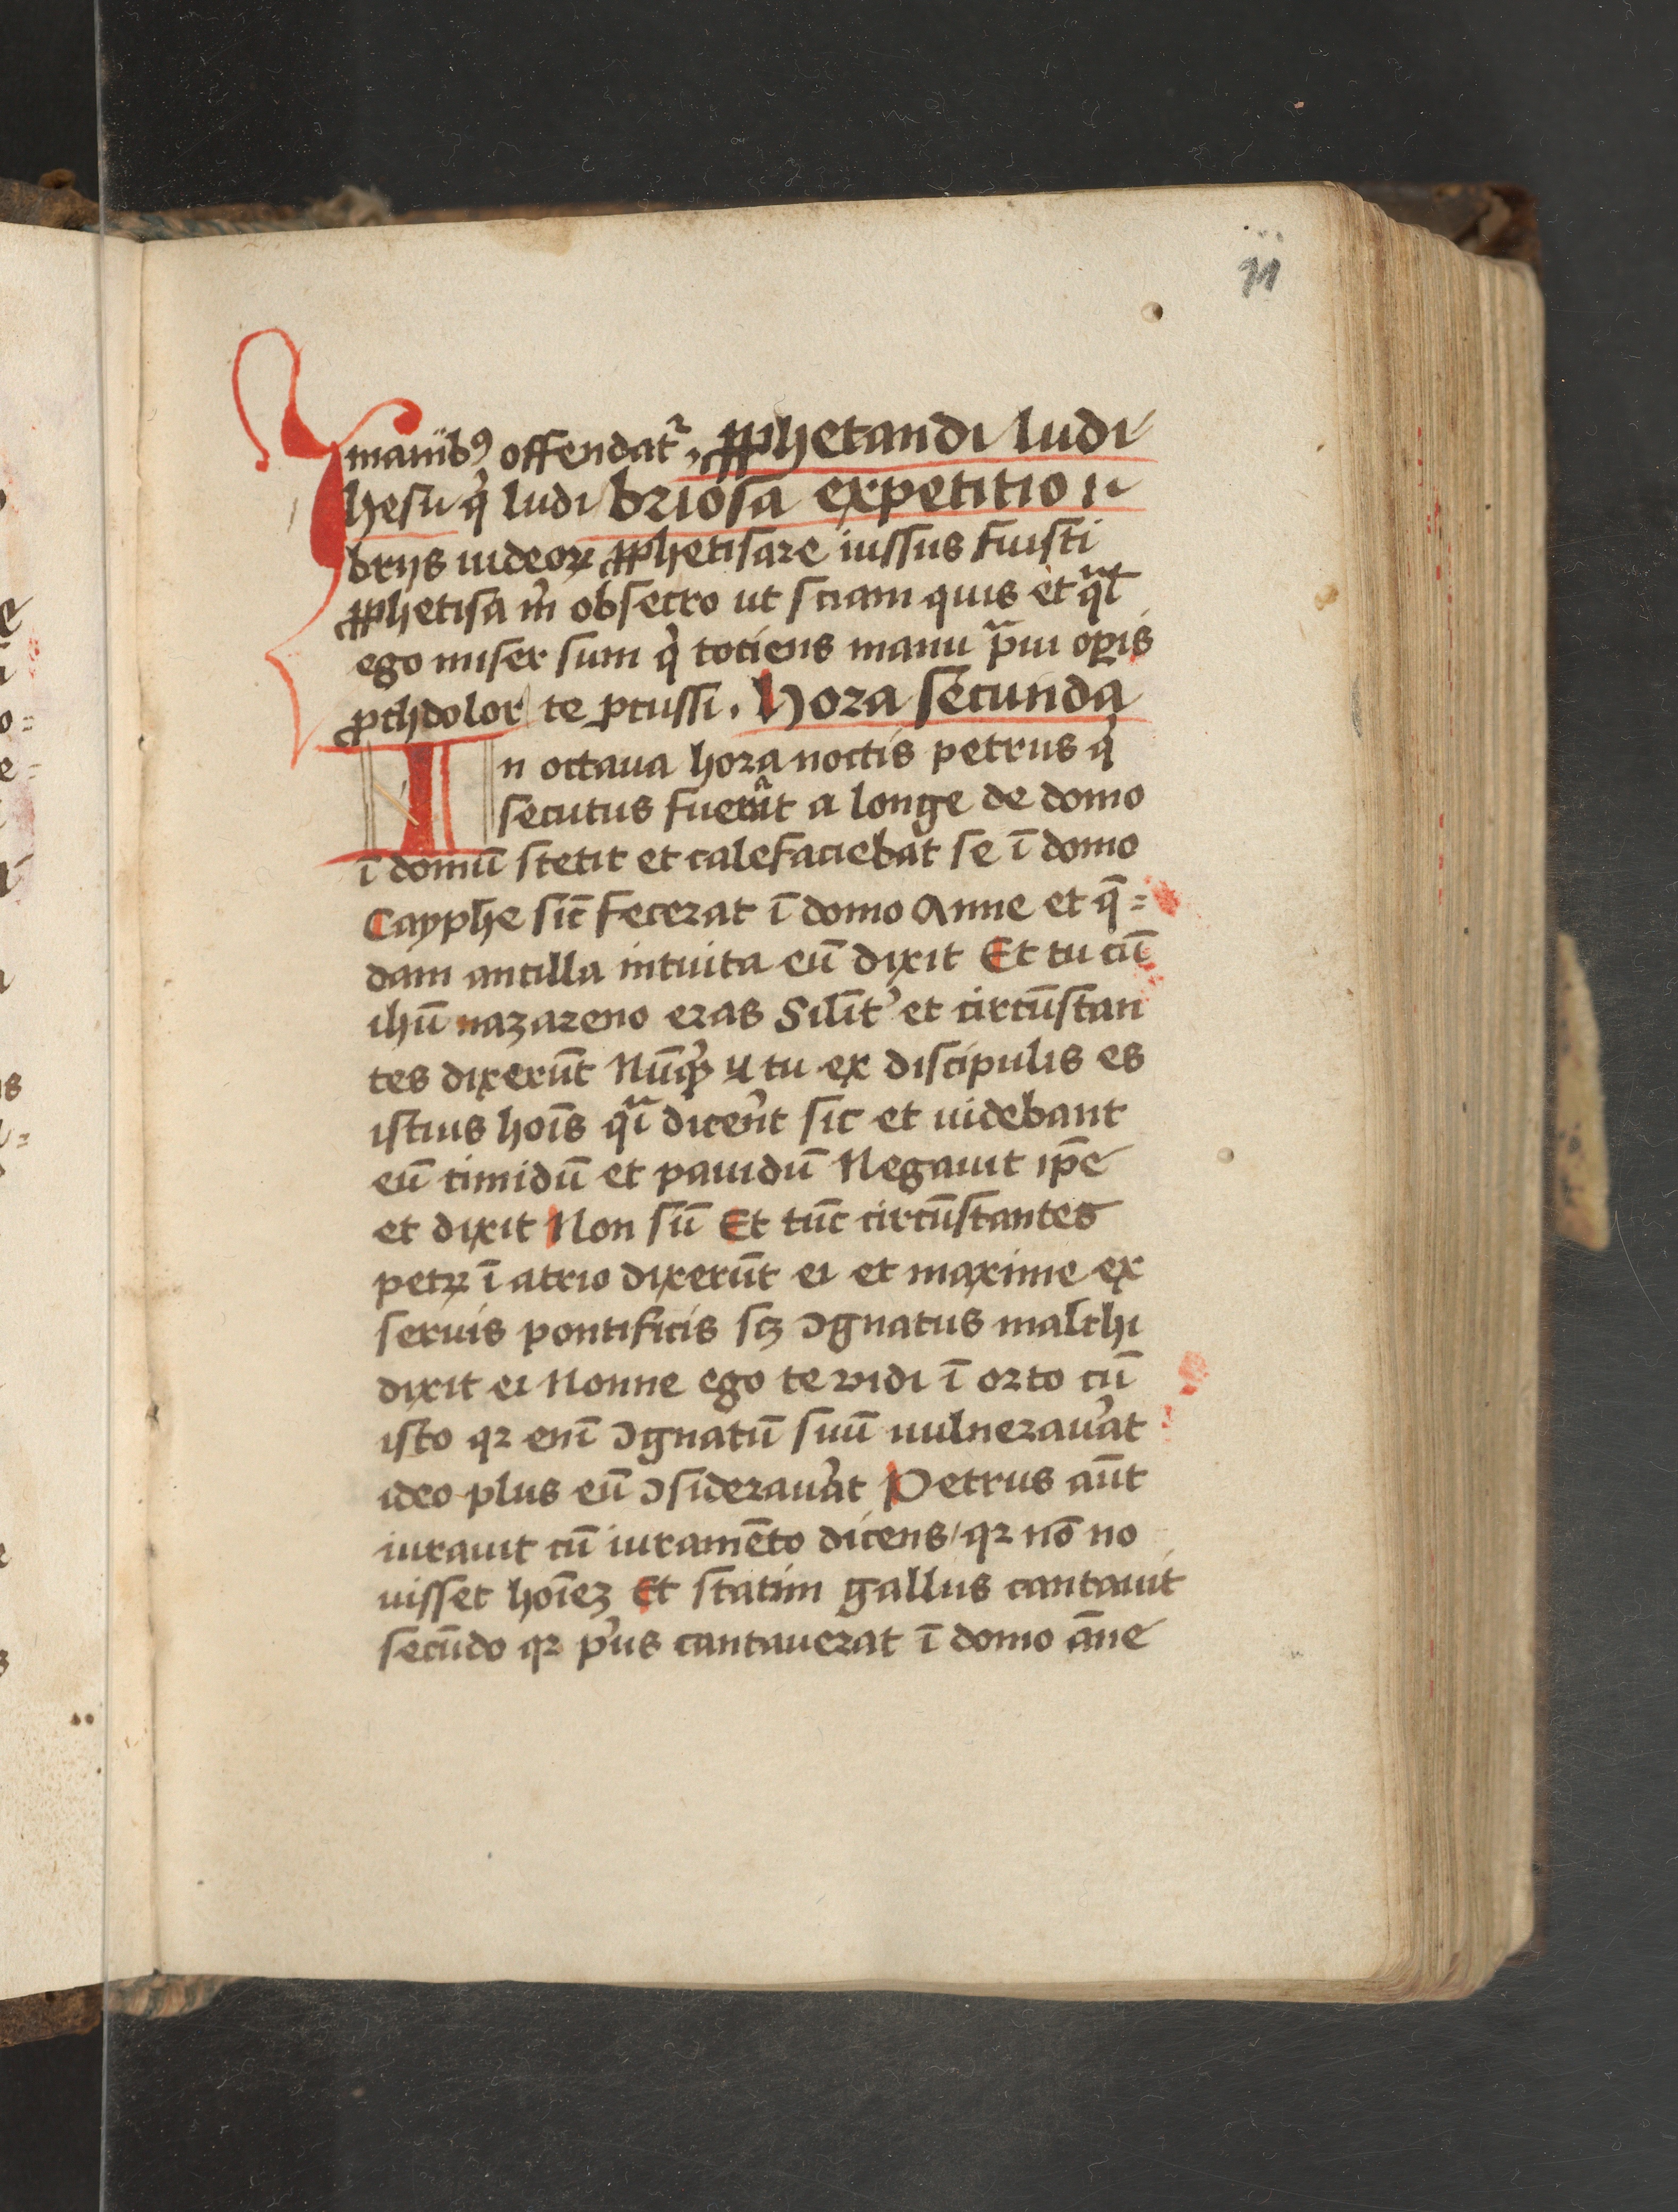 71
manibꝰ offendatᷣ . ꝓphetandi ludi
Ihesu qͥ ludi briosa expetitio ıı
brijs iudeoꝝ ꝓphetisare iussus fuisti
ꝓphetisa m̉ obsecro ut sciam quis et qͣl
ego miser sum qͥ totiens manu pͣui oꝑis
ꝓchdolor te ꝑcussi . Hora secunda
In octaua hora noctis petrus qͥ
secutus fuerat a longe de domo
ī domū stetit et calefaciebat se ī domo
Cayphe sic̄ fecerat ī domo Anne et q̄ =
dam ancilla intuita eū dixit Et tu cū
ihū nazareno eras Silīt̉ et circūstan
tes dixerūt Nūqͥd ⁊ tu ex discipulis es
istius hoīs qͣi dicer̉nt sic et uidebant
eū timidū et pauidū Negauit ip̄e
et dixit Non sū Et tūc circūstantes
petꝝ ī atrio dixerūt ei et maxime ex
seruis pontificis sꝫ ꝯgnatus malchi
dixit ei Nonne ego te vidi ī orto cū
isto qꝛ enī ꝯgnatū suū uulnerau̓at
ideo plus eū ꝯsiderau̓at Petrus aūt
iurauit cū iuramēto dicens / qꝛ nō no
uisset hoīeꝫ Et statim gallus cantauit
secūdo qꝛ pͥus cantauerat ī domo āne